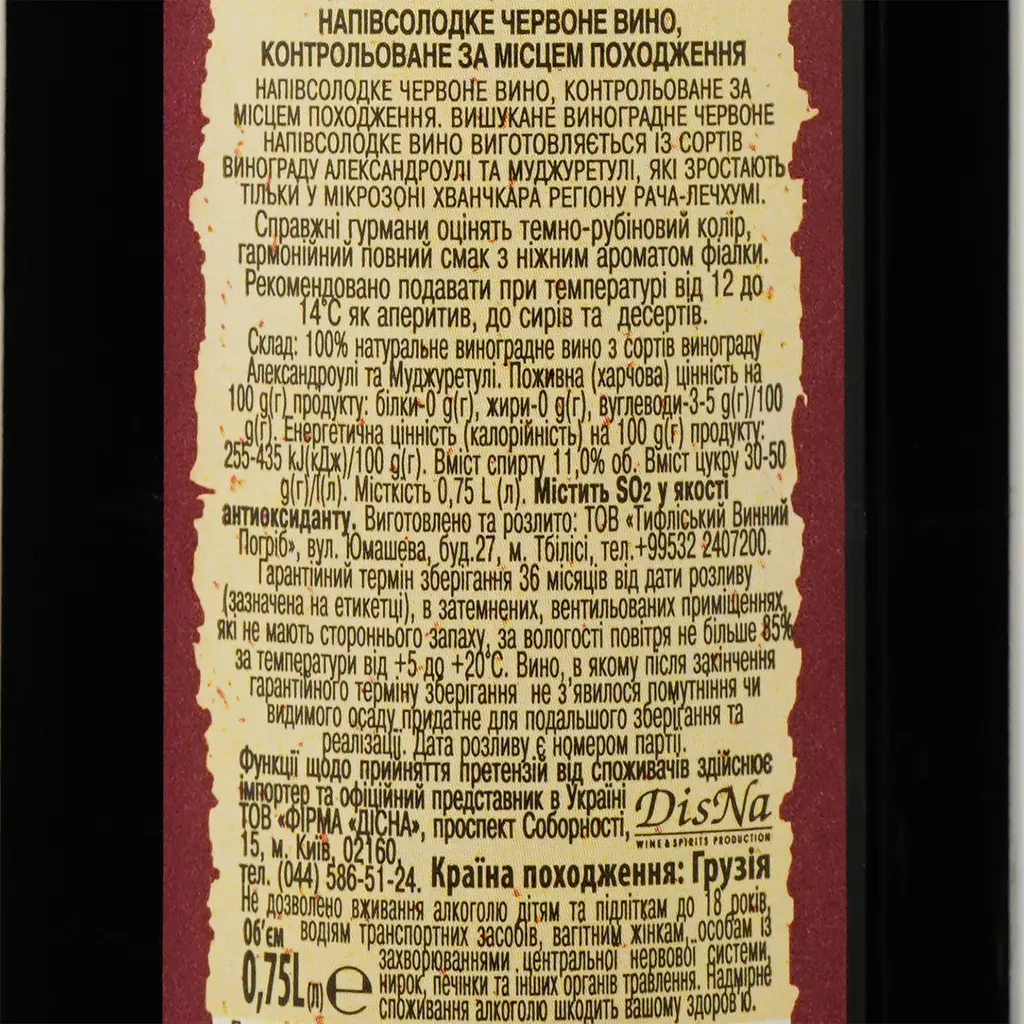 НАПІВСОЛОДКЕ ЧЕРВОНЕ ВИНО,
КОНТРОЛЬОВАНЕ ЗА МІСЦЕМ ПОХОДЖЕННЯ
НАПІВСОЛОДКЕ ЧЕРВОНЕ ВИНО, КОНТРОЛЬОВАНЕ ЗА
МІСЦЕМ ПОХОДЖЕННЯ. ВИШУКАНЕ ВИНОГРАДНЕ ЧЕРВОНЕ
НАПІВСОЛОДКЕ ВИНО ВИГОТОВЛЯЄТЬСЯ ІЗ СОРТІВ
ВИНОГРАДУ АЛЕКСАНДРОУЛІ ТА МУДЖУРЕТУЛІ, ЯКІ ЗРОСТАЮТЬ
ТІЛЬКИ У МІКРОЗОНІ ХВАНЧКАРА РЕГІОНУ РАЧА-ЛЕЧХУМІ.
Справжні гурмани оцінять темно-рубіновий колір,
гармонійний повний смак з ніжним ароматом фіалки.
Рекомендовано подавати при температурі від 12 до
14°С як аперитив, до сирів та десертів.
Склад: 100% натуральне виноградне вино з сортів винограду
Александроулі та Муджуретулі. Поживна (харчова) цінність на
100 g(г) продукту: білки-0 g(г), жири-0 g(г), вуглеводи-3-5 g(г)/100
g(г). Енергетична цінність (калорійність) на 100 g(г) продукту:
255-435 kJ(кДж)/100 g(г). Вміст спирту 11,0% об. Вміст цукру 30-50
g(г)/l(л). Місткість 0,75 L (л). Містить SO2 у якості
антиоксиданту. Виготовлено та розлито: ТОВ «Тифліський Винний
Погріб», вул. Юмашева, буд.27, м. Тбілісі, тел.+99532 2407200.
Гарантійний термін зберігання 36 місяців від дати розливу
(зазначена на етикетці), в затемнених, вентильованих приміщеннях,
які не мають стороннього запаху, за вологості повітря не більше 85%
за температури від +5 до +20°С. Вино, в якому після закінчення
гарантійного терміну зберігання не з'явилося помутніння чи
видимого осаду придатне для подальшого зберігання та
реалізації. Дата розливу є номером партії.
Функції щодо прийняття претензій від споживачів здійснює
імпортер та офіційний представник в Україні
ТОВ «ФІРМА «ДІСНА», проспект Соборності,
15, м. Київ, 02160,
тел. (044) 586-51-24.
DisNa
WINE & SPIRITS PRODUCTION
Країна походження: Грузія
Не дозволено вживання алкоголю дітям та підліткам до 18 років,
водіям транспортних засобів, вагітним жінкам, особам із
захворюваннями центральної нервової системи,
нирок, печінки та інших органів травлення. Надмірне
споживання алкоголю шкодить вашому здоров'ю.
Об'єм
0,75L(л) ℮